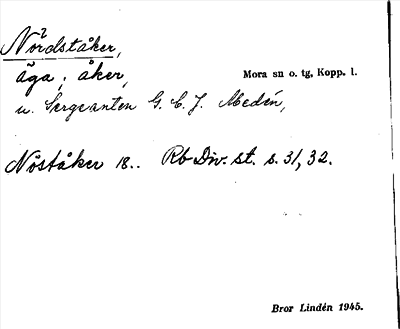 Nordståker,
äga, åker,
Mora sn o. tg, Kopp. l.
u. Sergeanten G. C. J. Medén,
Nöståker 18.. Rb Div. st. s. 31, 32.
Bror Lindén 1945.